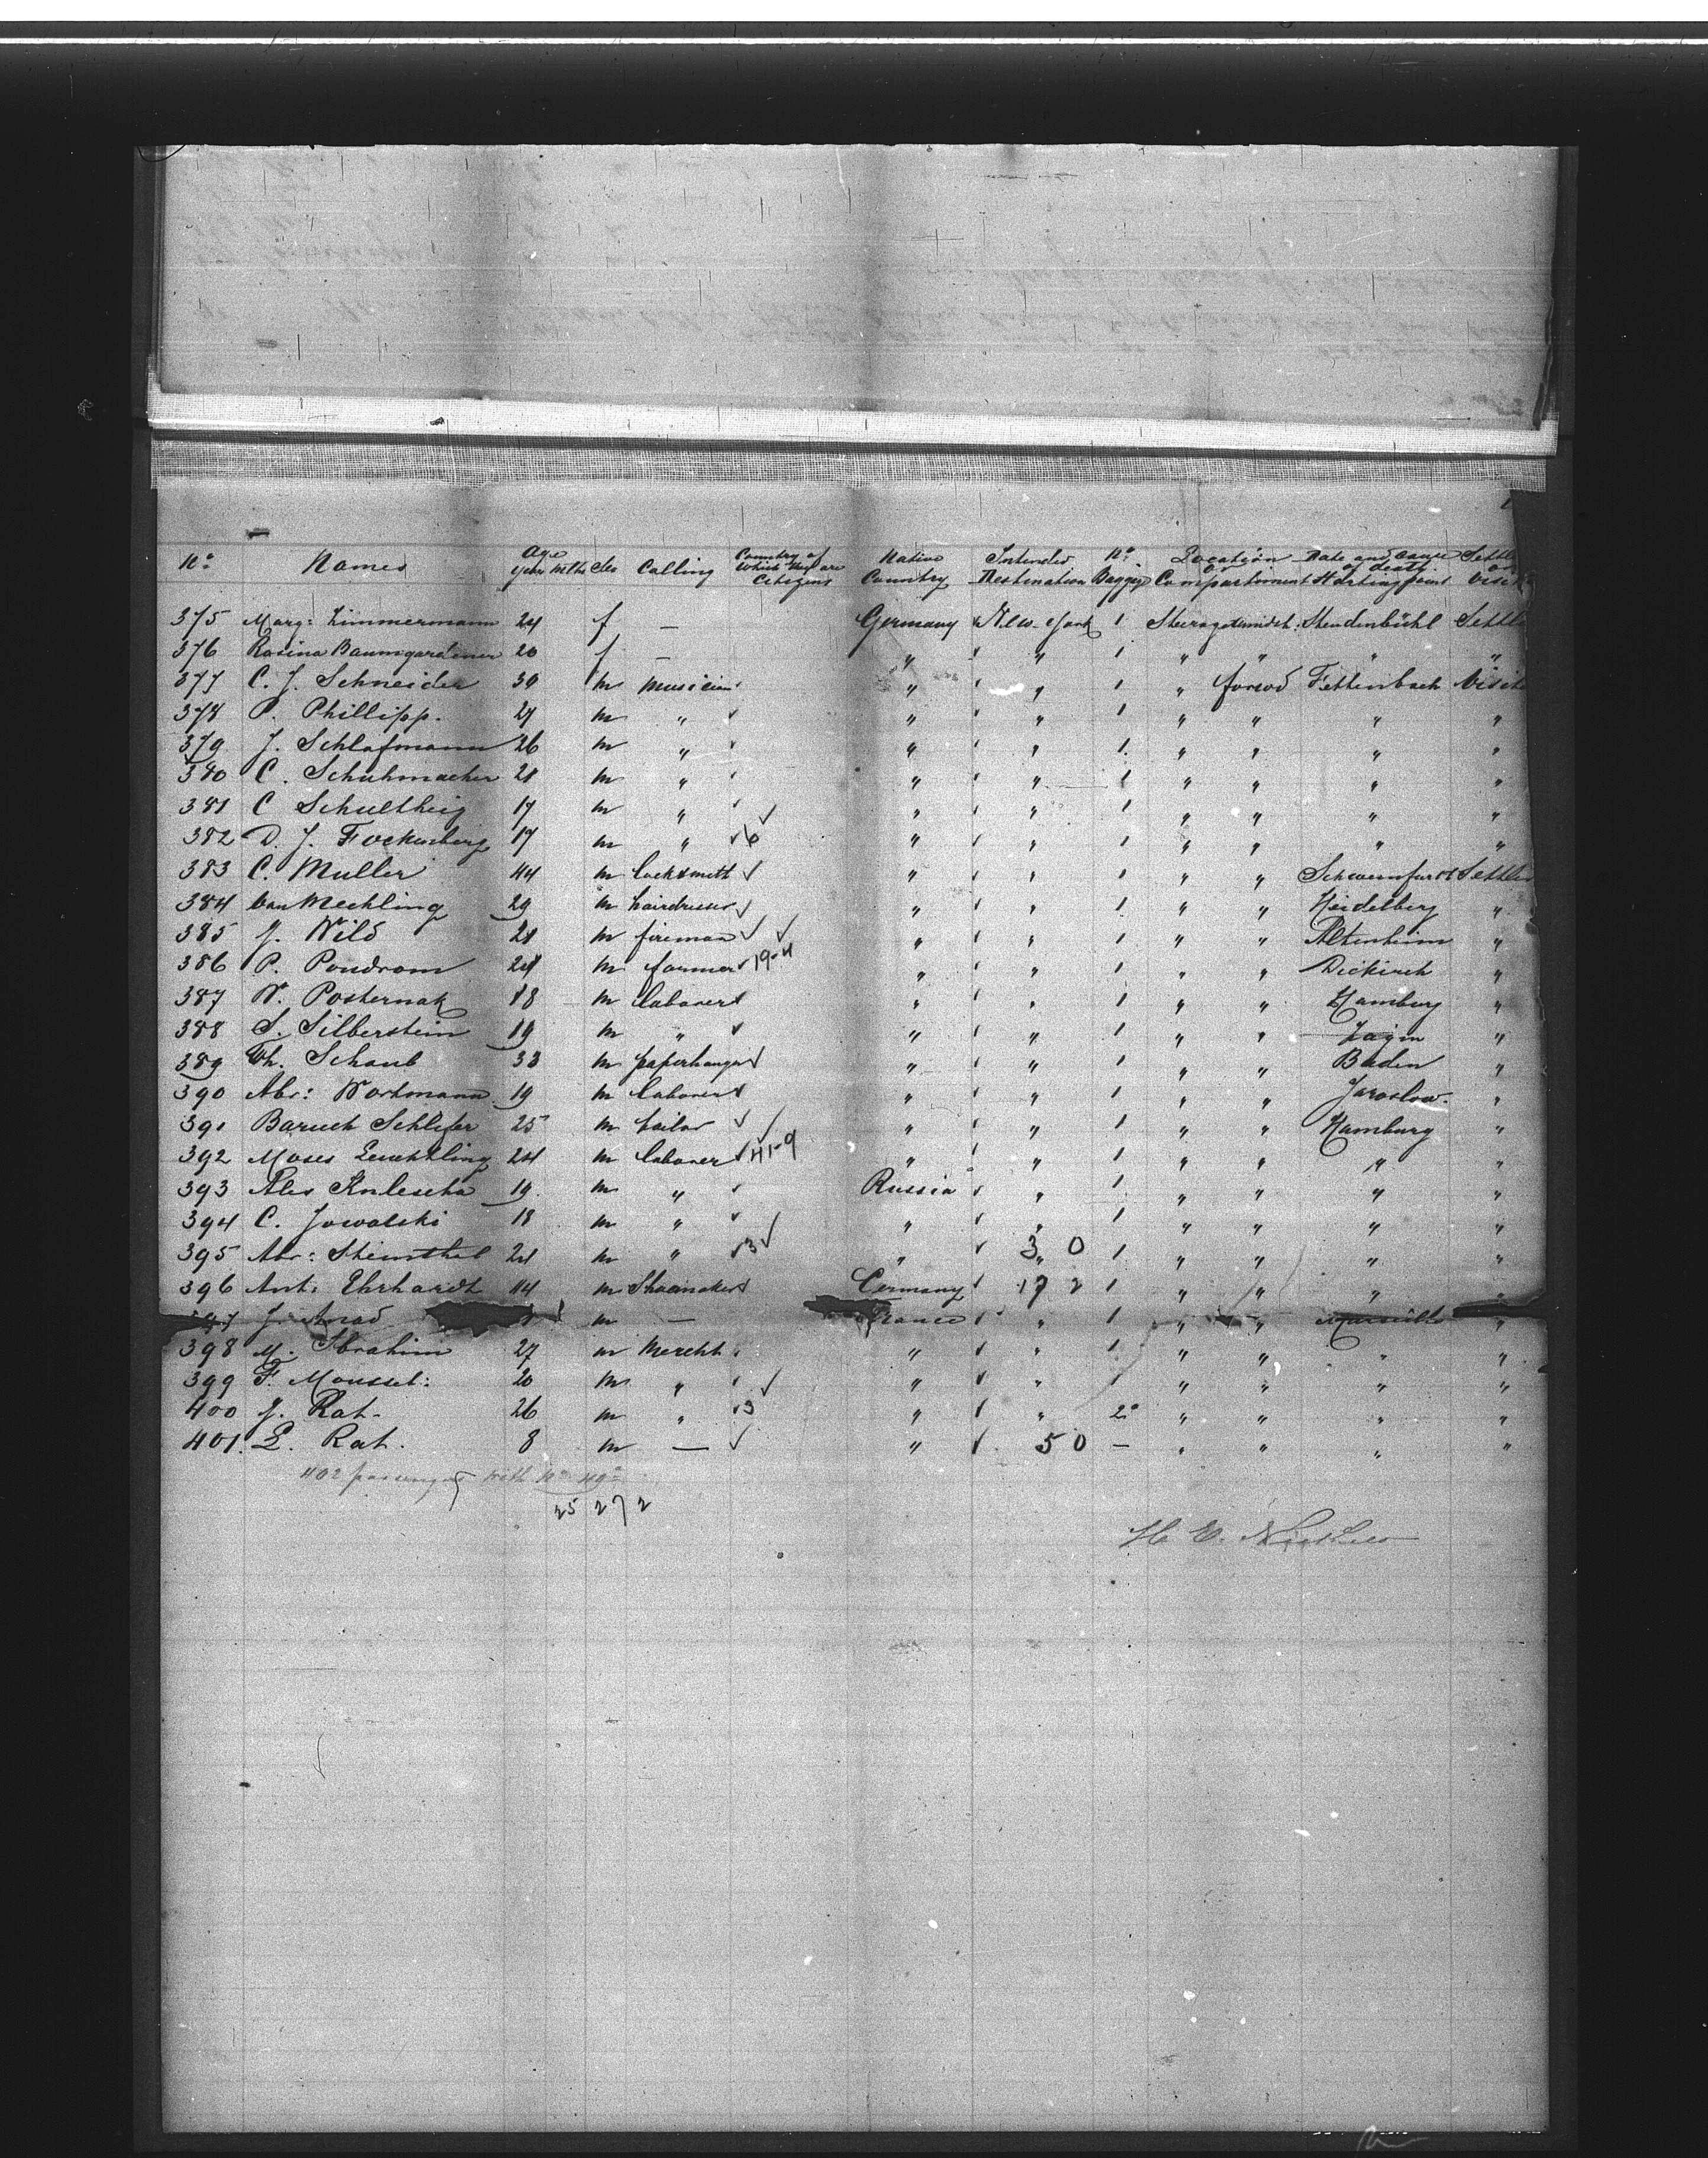 No. Names Age Years Mths Sex Calling Country of which they are Citizens Native Country Intended Destination No. Baggage Location or Compartment Date and cause of death. Starting point Settle or Visit
375 Marg: Zimmermann 24 f — Germany New York 1 Steerage Settle
376 Rosina Baumgardner 20 f — " " 1 " " " "
377 C. J. Schneider 30 m musician " " 1 " forwd Fettenbach Visit
378 P. Phillipp. 27 m " " " 1 " " " "
379 J. Schlafmann 26 m " " " 1 " " " "
380 C. Schuhmacher 21 m " " " 1 " " " "
381 C Schultheig 17 m " " " 1 " " " "
382 D. J. 17 m " 6 " " 1 " " " "
383 C. Muller 44 m locksmith " " 1 " " Schweinfurdt Settler
384 Mechling 29 m hairdresser " " 1 " " Heidelberg "
385 J. Wild 21 m fireman " " 1 " " Altenheim "
386 P. Pondrom 24 m farmer 19-4 " " 1 " " Diekirch "
387 N. Posternak 18 m laborer " " 1 " " Hamburg "
388 S. Silberstein 19 m " " " 1 " " "
389 Th. Schaub 33 m paperhanger " " 1 " " Baden "
390 Abr: Wortmann 19 m laborer " " 1 " " Jaroslow. "
391 Baruch Schlifer 25 m tailor " " 1 " " Hamburg "
392 Moses 24 m laborer 41-9 " " 1 " " " "
393 Alex 19 m " Russia " 1 " " " "
394 C. Jowalski 18 m " " " 1 " " " "
395 Abr: Steinthal 21 m " 3 " 3 0 1 " " " "
396 Ant: Ehrhardt 44 m Shoemaker Germany 17 2 1 " " " "
J. m — France " 1 " " "
398 M. Ibrahim 27 m Mercht " " 1 " " " "
399 F. Moussel: 20 m " " " 1 " " " "
400 J. Rat. 26 m " 3 " " 2 " " " "
401. E. Rat. 8 m — " 50 — " " " "
402 passengers with No.
25 272